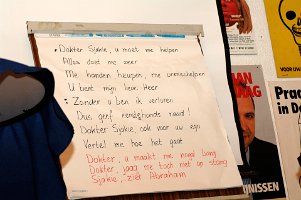 Dokter Sjakie, u moet me helpen
Alles doet me zeer
Me handen, heupen, me
U bent mijn lieve Heer
Zonder u ben ik verloren
Dus geef raad!
Dokter Sjakie, ook voor uw zijn
Vertel me hoe het gaat
Dokter, u maakt me nogal bang
Dokter, jaag me toch niet op stang
Sjakie, ziet Abraham
JAN
MAG
NISSEN
OUW
Praa
in D